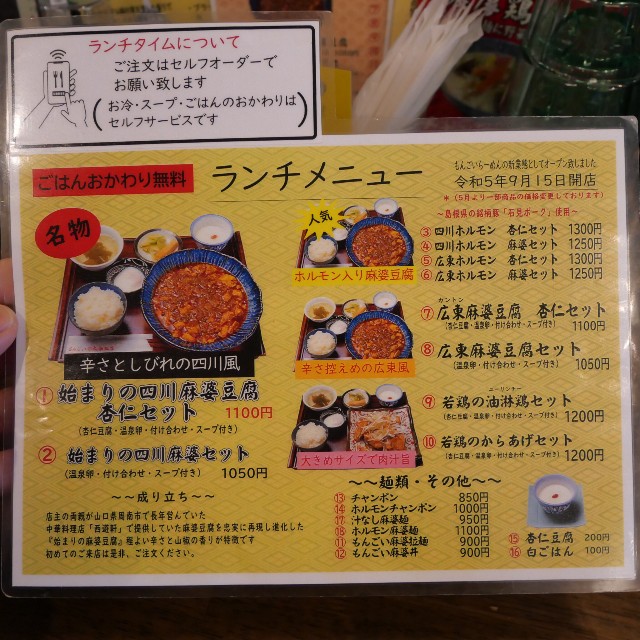 ランチタイムについて
ご注文はセルフオーダーで
お願い致します
(お冷・スープ・ごはんのおかわりは
セルフサービスです)
ごはんおかわり無料
ランチメニュー
もんごいらーめんの新業態としてオープン致しました
令和5年9月15日開店
*(5月より一部商品の価格変更しております)
名物
辛さとしびれの四川風
① 始まりの四川麻婆豆腐
杏仁セット 1100円
(杏仁豆腐・温泉卵・付け合わせ・スープ付き)
② 始まりの四川麻婆セット
(温泉卵・付け合わせ・スープ付き) 1050円
～～成り立ち～～
店主の両親が山口県周南市で長年営んでいた
中華料理店「西遊軒」で提供していた麻婆豆腐を忠実に再現し進化した
『始まりの麻婆豆腐』程よい辛さと山椒の香りが特徴です
初めてのご来店は是非、ご注文ください。
人気
ホルモン入り麻婆豆腐
辛さ控えめの広東風
大きめサイズで肉汁旨
～島根県の銘柄豚「石見ポーク」使用～
③ 四川ホルモン 杏仁セット 1300円
④ 四川ホルモン 麻婆セット 1250円
⑤ 広東ホルモン 杏仁セット 1300円
⑥ 広東ホルモン 麻婆セット 1250円
カントン
⑦ 広東麻婆豆腐 杏仁セット
(杏仁豆腐・温泉卵・付け合わせ・スープ付き) 1100円
⑧ 広東麻婆豆腐セット
(温泉卵・付け合わせ・スープ付き) 1050円
ユーリンチー
⑨ 若鶏の油淋鶏セット
(杏仁豆腐・温泉卵・付け合わせ・スープ付き) 1200円
⑩ 若鶏のからあげセット
(杏仁豆腐・温泉卵・付け合わせ・スープ付き) 1200円
～～麺類・その他～～
⑬ チャンポン 850円
⑭ ホルモンチャンポン 1000円
⑰ 汁なし麻婆麺 950円
⑱ ホルモン麻婆麺 1100円
⑪ もんごい麻婆拉麺 900円
⑫ もんごい麻婆丼 900円
⑮ 杏仁豆腐 200円
⑯ 白ごはん 100円